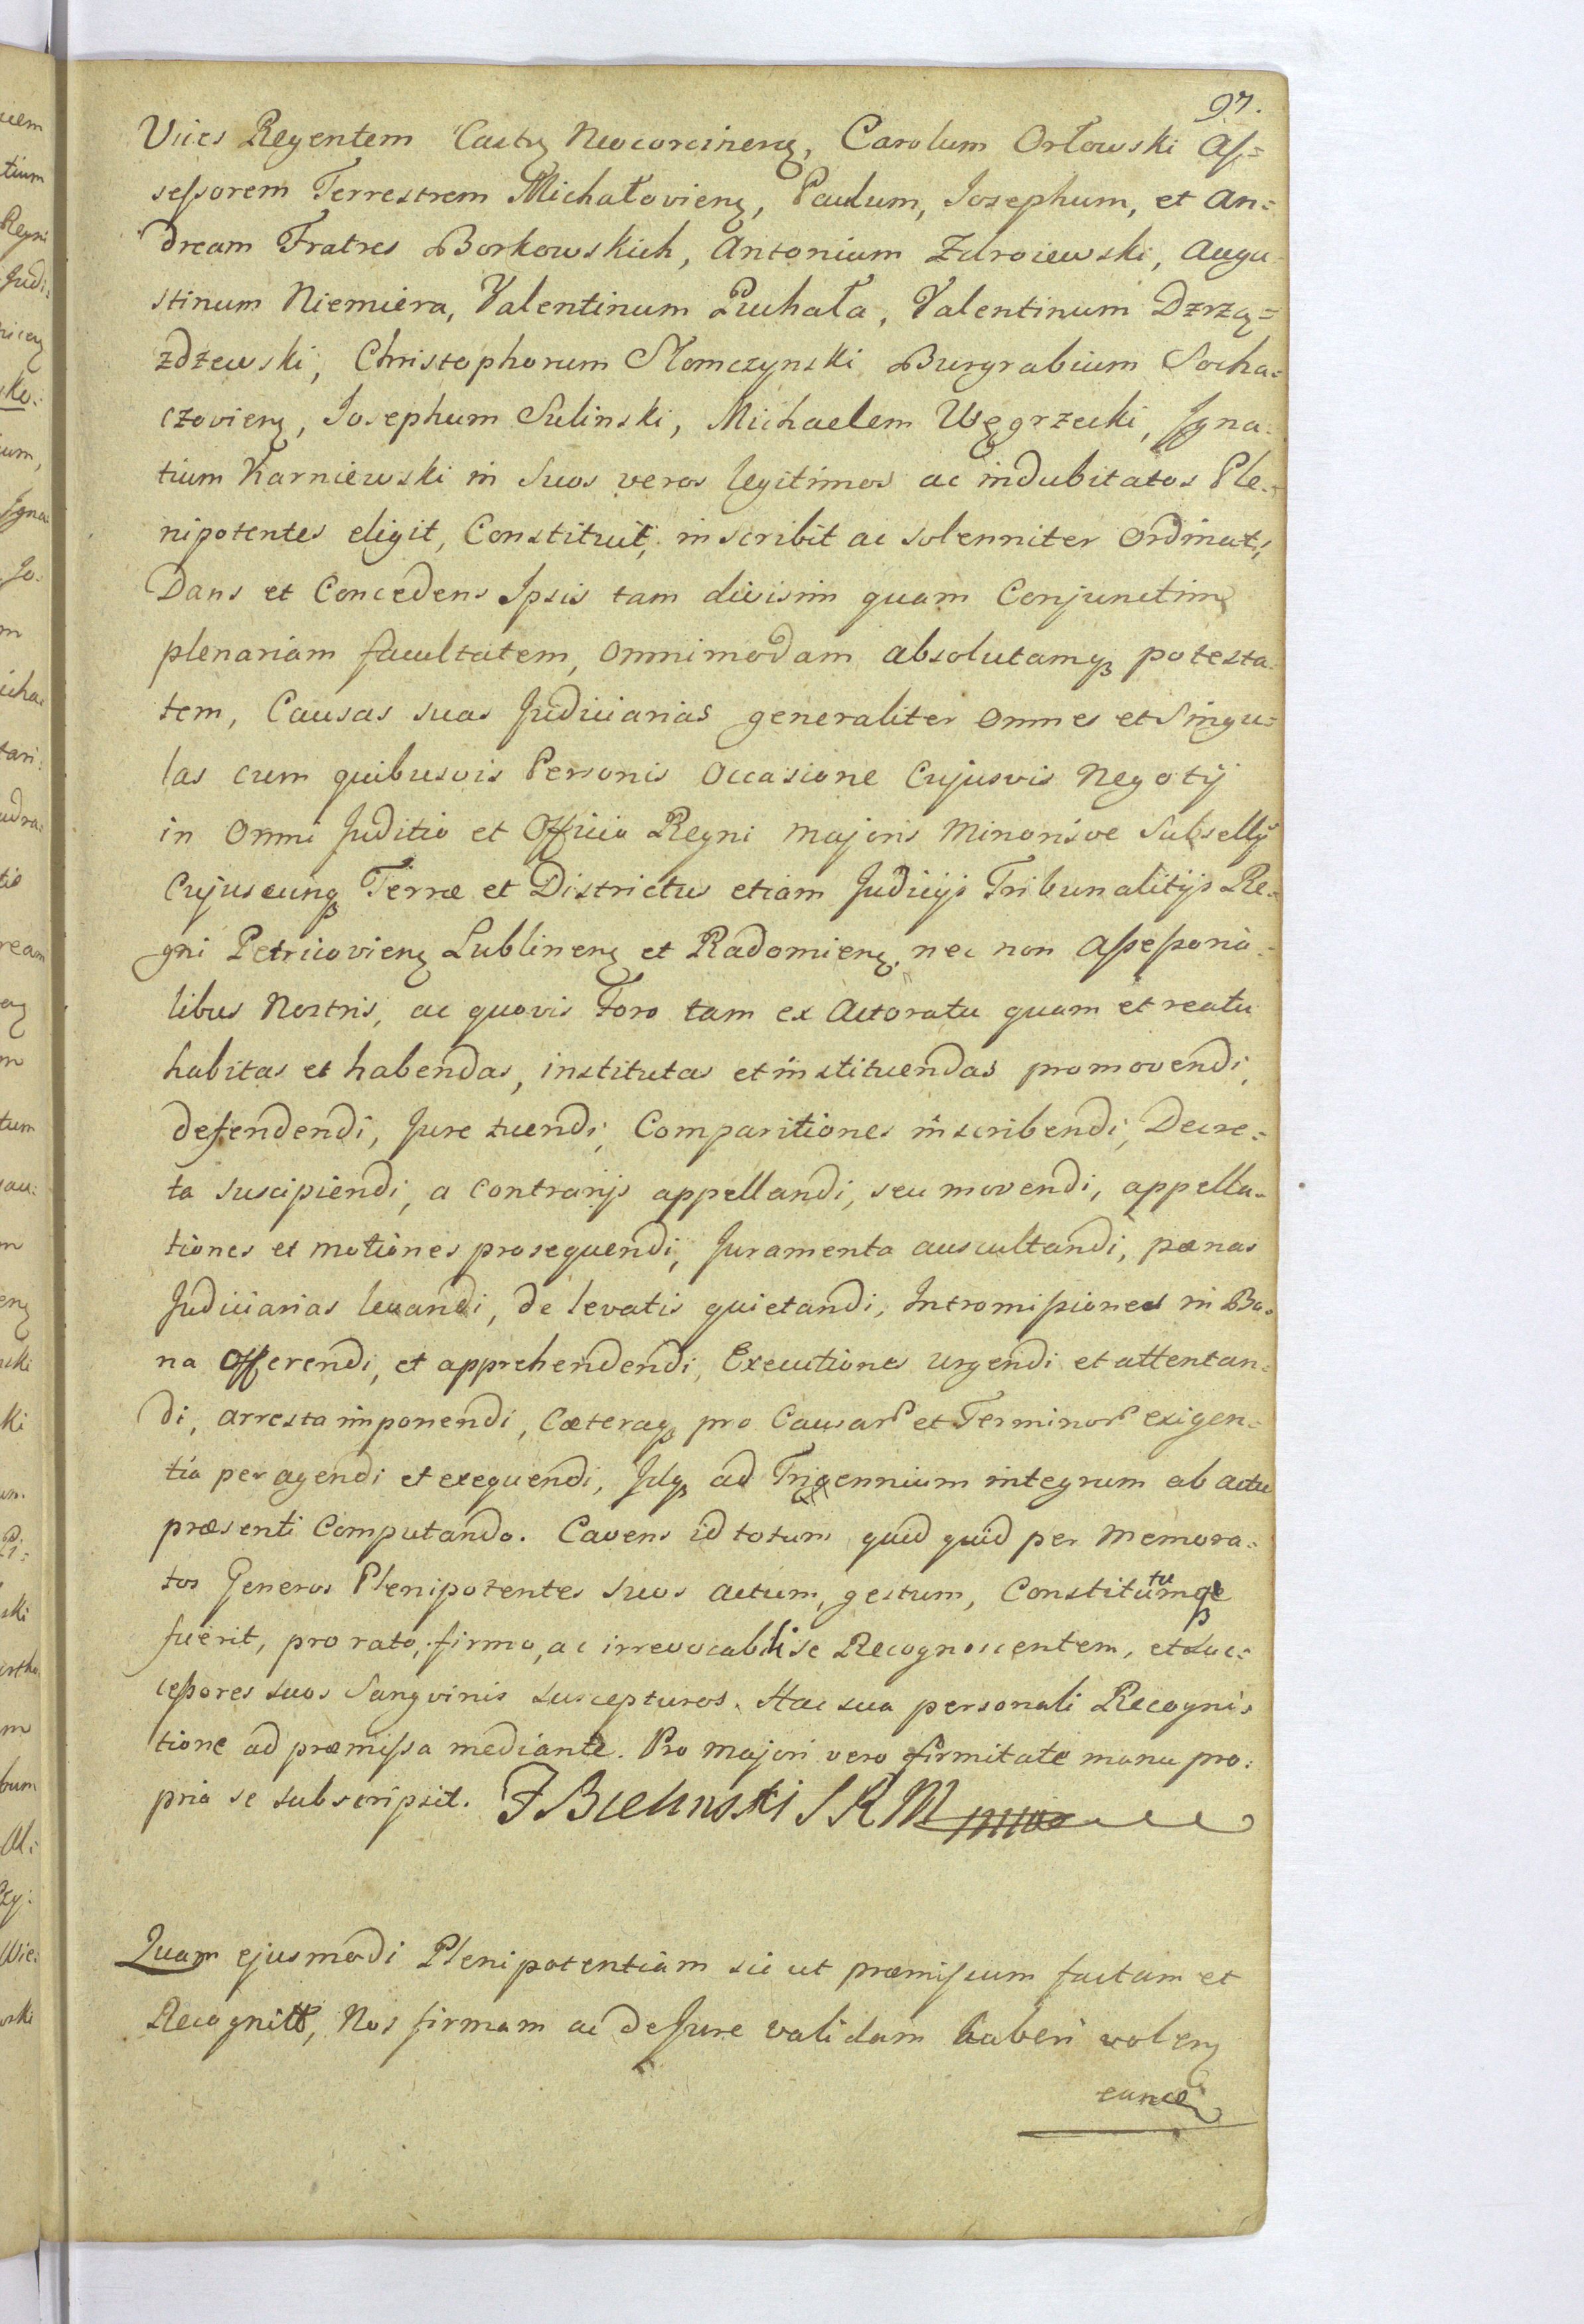 97.
Vices Regentem Castrz Neocorcinenz, Carolum Orłowski As=
sessorem Terrestrem Michałovienz, Paulum, Josephum, et An=
dream Fratres Borkowskich, Antonium Zdroiewski, Augu
stinum Niemiera, Valentinum Puchała, Valentinum Dzrzą=
zdzewski, Christophorum Słomczynski Burgrabium Socha=
czovienz, Josephum Sulinski, Michaelem Węgrzecki, Igna=
tium Karniewski in Suos veros legitimos ac indubitatos Ple=
nipotentes eligit, Constituit, inscribit ac solenniter Ordinat,
Dans et Concedens Ipsis tam divisim quam Conjunctim
plenariam facultatem, omnimodam absolutamqz potesta=
tem, Causas suas Judiciarias generaliter omnes et Singu=
las cum quibusvis Personis Occasione Cujusvis Negotij
in Omni Juditio et Officio Regni Majoris Minorisve Subsellij
Cujuscunqz Terræ et Districtus etiam Judicijs Tribunalitijs Re=
gni Petricovienz Lublinenz et Radomienz nec non Assessoria=
libus Nostris, ac quovis Foro tam ex Actoratu quam et reatu
habitas et habendas, institutas et instituendas promovendi,
defendendi, Jure tuendi, Comparitiones inscribendi, Decre=
ta suscipiendi, a Contrarijs appellandi, seu movendi, appella=
tiones et motiones prosequendi, Juramenta auscultandi, pænas
Judiciarias levandi, de levatis quietandi, Intromissiones in Bo=
na Offerendi, et apprehendendi, Executiones urgendi et attentan=
di, arresta imponendi, Cæteraqz pro Causarū et Terminorū exigen=
tia peragendi et exequendi, Idqz ad Trigennium integrum ab actu
præsenti Computando. Cavens id totum quid quid per Memora=
tos Generos Plenipotentes Suos actum, gestum, Constitutumqz
fuerit, pro rato, firmo, ac irrevocabili se Recognoscentem, et Suc=
cessores suos Sangvinis suscepturos. Hac sua personali Recogni=
tione ad præmissa mediante. Pro majori vero firmitate manu pro=
pria se subscripsit. F Bielinski S K M mpia
Quam ejusmodi Plenipotentiam sic ut præmissum factam et
Recognitt, Nos firmam ac de Jure validam haberi volenz